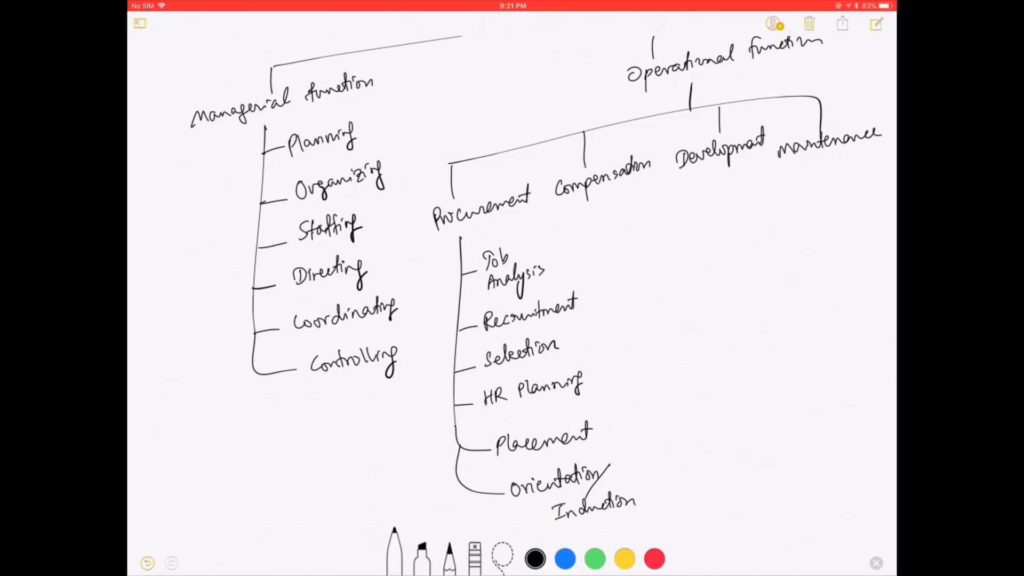 No SIM
9:21 PM
83%
Managerial function
Planning
Organizing
Staffing
Directing
Coordinating
Controlling
Operational function
Procurement
Compensation
Development
Maintenance
Job
Analysis
Recruitment
Selection
HR Planning
Placement
Orientation/
Induction